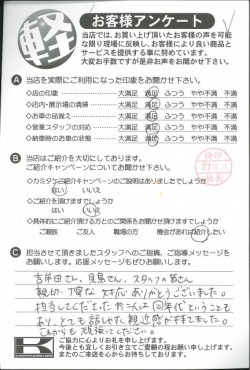 軽
お客様アンケート
当店では、お買い上げ頂いたお客様の声を可能
な限り現場に反映し、お客様により良い商品と
サービスを提供する事に努めています。
大変お手数ですが是非お声をお聞かせ下さい。
A 当店を実際にご利用になった印象をお聞かせ下さい。
◇店の印象 大満足 満足 ふつう やや不満 不満
◇店内・展示場の清掃 大満足 満足 ふつう やや不満 不満
◇車の品揃え 大満足 満足 ふつう やや不満 不満
◇営業スタッフの対応 大満足 満足 ふつう やや不満 不満
◇納車時のお車の状態 大満足 満足 ふつう やや不満 不満
B 当店はご紹介を大切にしております。
ご紹介キャンペーンについてお聞かせ下さい。
◇カミタケご紹介キャンペーンのご説明はありましたでしょうか
はい いいえ
◇ご紹介を頂けますでしょうか
はい いいえ
◇具体的にご紹介頂ける方とのご関係をお聞かせ頂けますでしょうか
ご親族 ご友人 職場の方 機会があれば紹介したい
C 担当させて頂きましたスタッフへのご指摘、ご指導メッセージを
お願いします。応援メッセージもぜひお願いします。
さん、スタッフの皆さん
親切・丁寧な対応ありがとうございました。
担当してくださった さんは同年代ということも
あり、とても話しやすく親近感が持てました。
これからも頑張ってください。
ご協力に心よりお礼を申し上げます。
今後とも宜しくお引き立てご愛顧の程お願い申し上げます。
またのご来店を心からお待ちしております。
K